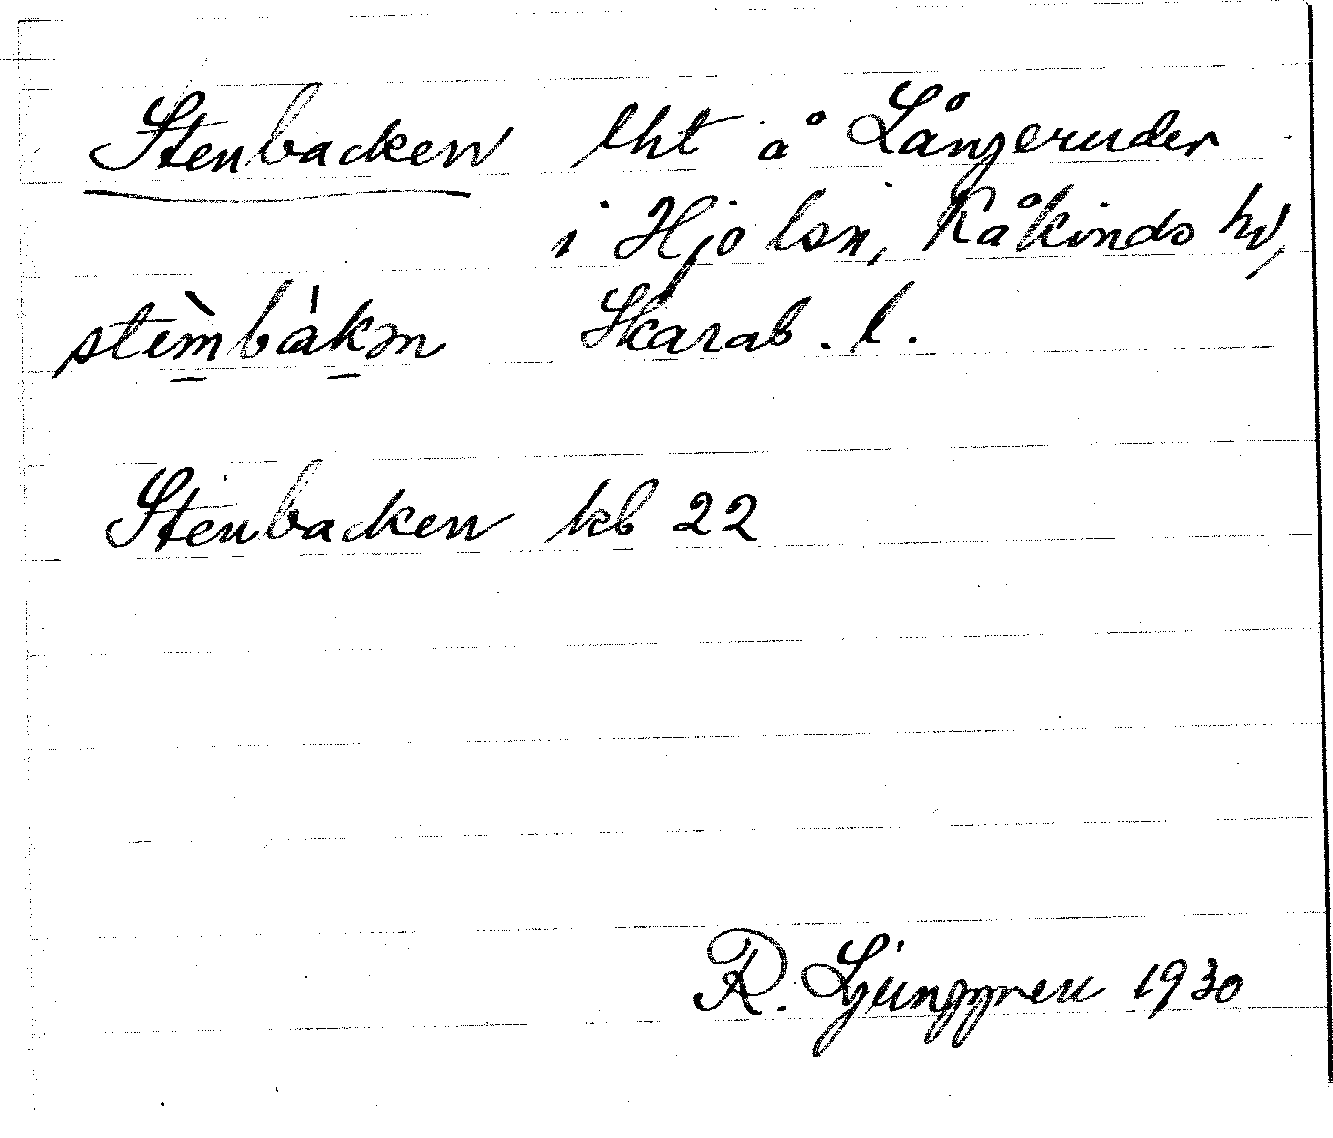 Stenbacken lht å Långeruder
i Hjo lsn, Kåkinds hd,
stèmbàkən Skarab. l.
Stenbacken kb 22
R. Ljunggren 1930